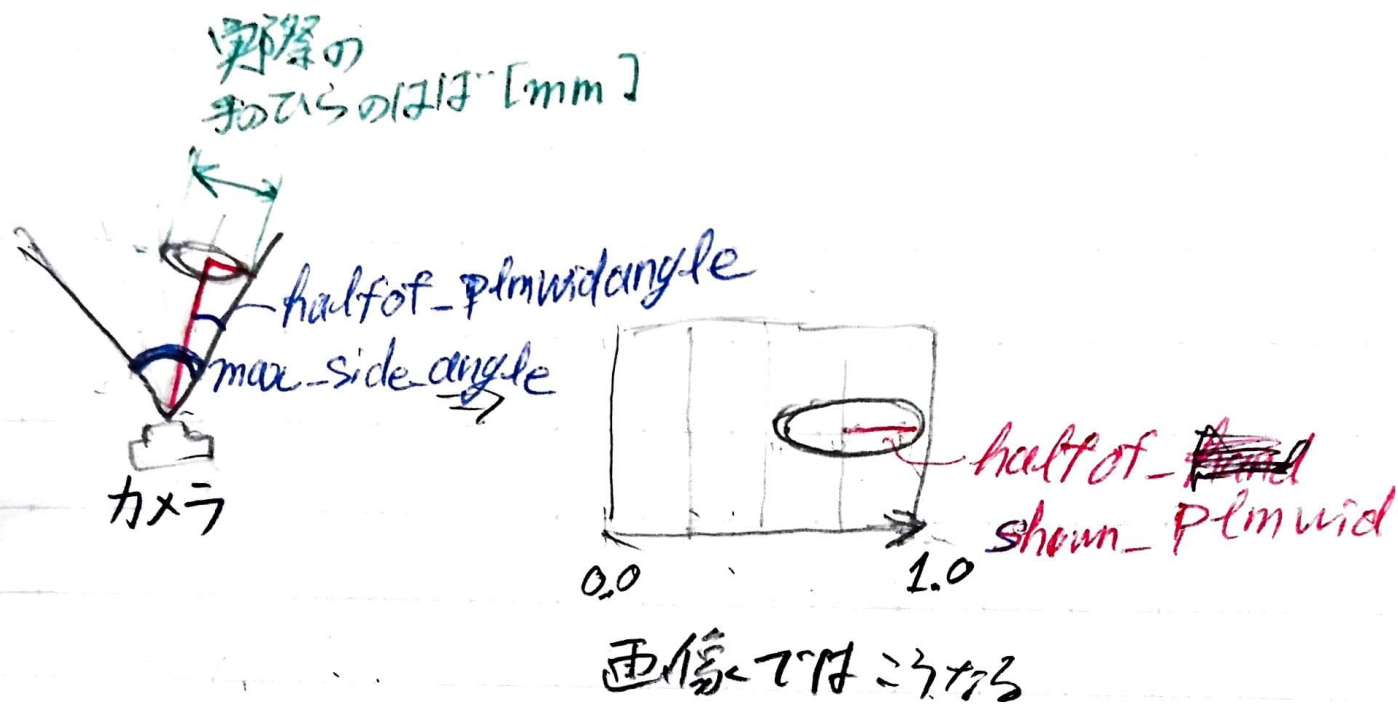 実際の
手のひらのはば [mm]
halfof_plmwidangle
max_side_angle
カメラ
halfof_
shown_plmwid
0.0
1.0
画像ではこうなる